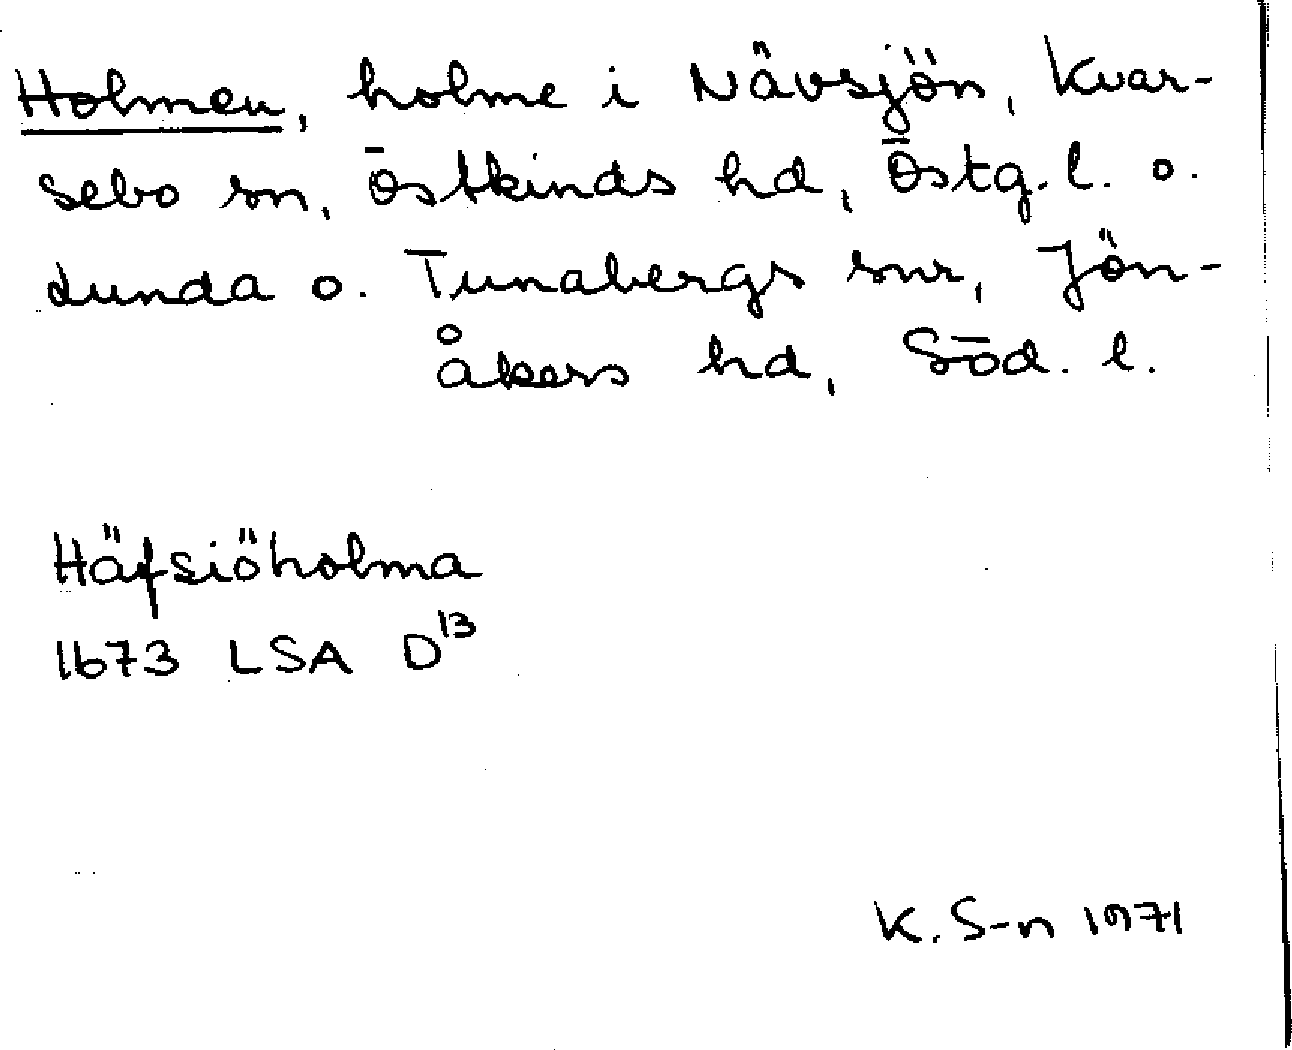 Holmen, holme i Nävsjön, Kvar-
sebo sn, Östkinds hd, Östg. l. o.
Lunda o. Tunabergs snr, Jön-
åkers hd, Söd. l.
Häfsiöholma
1673 LSA D¹³
K. S-n 1971